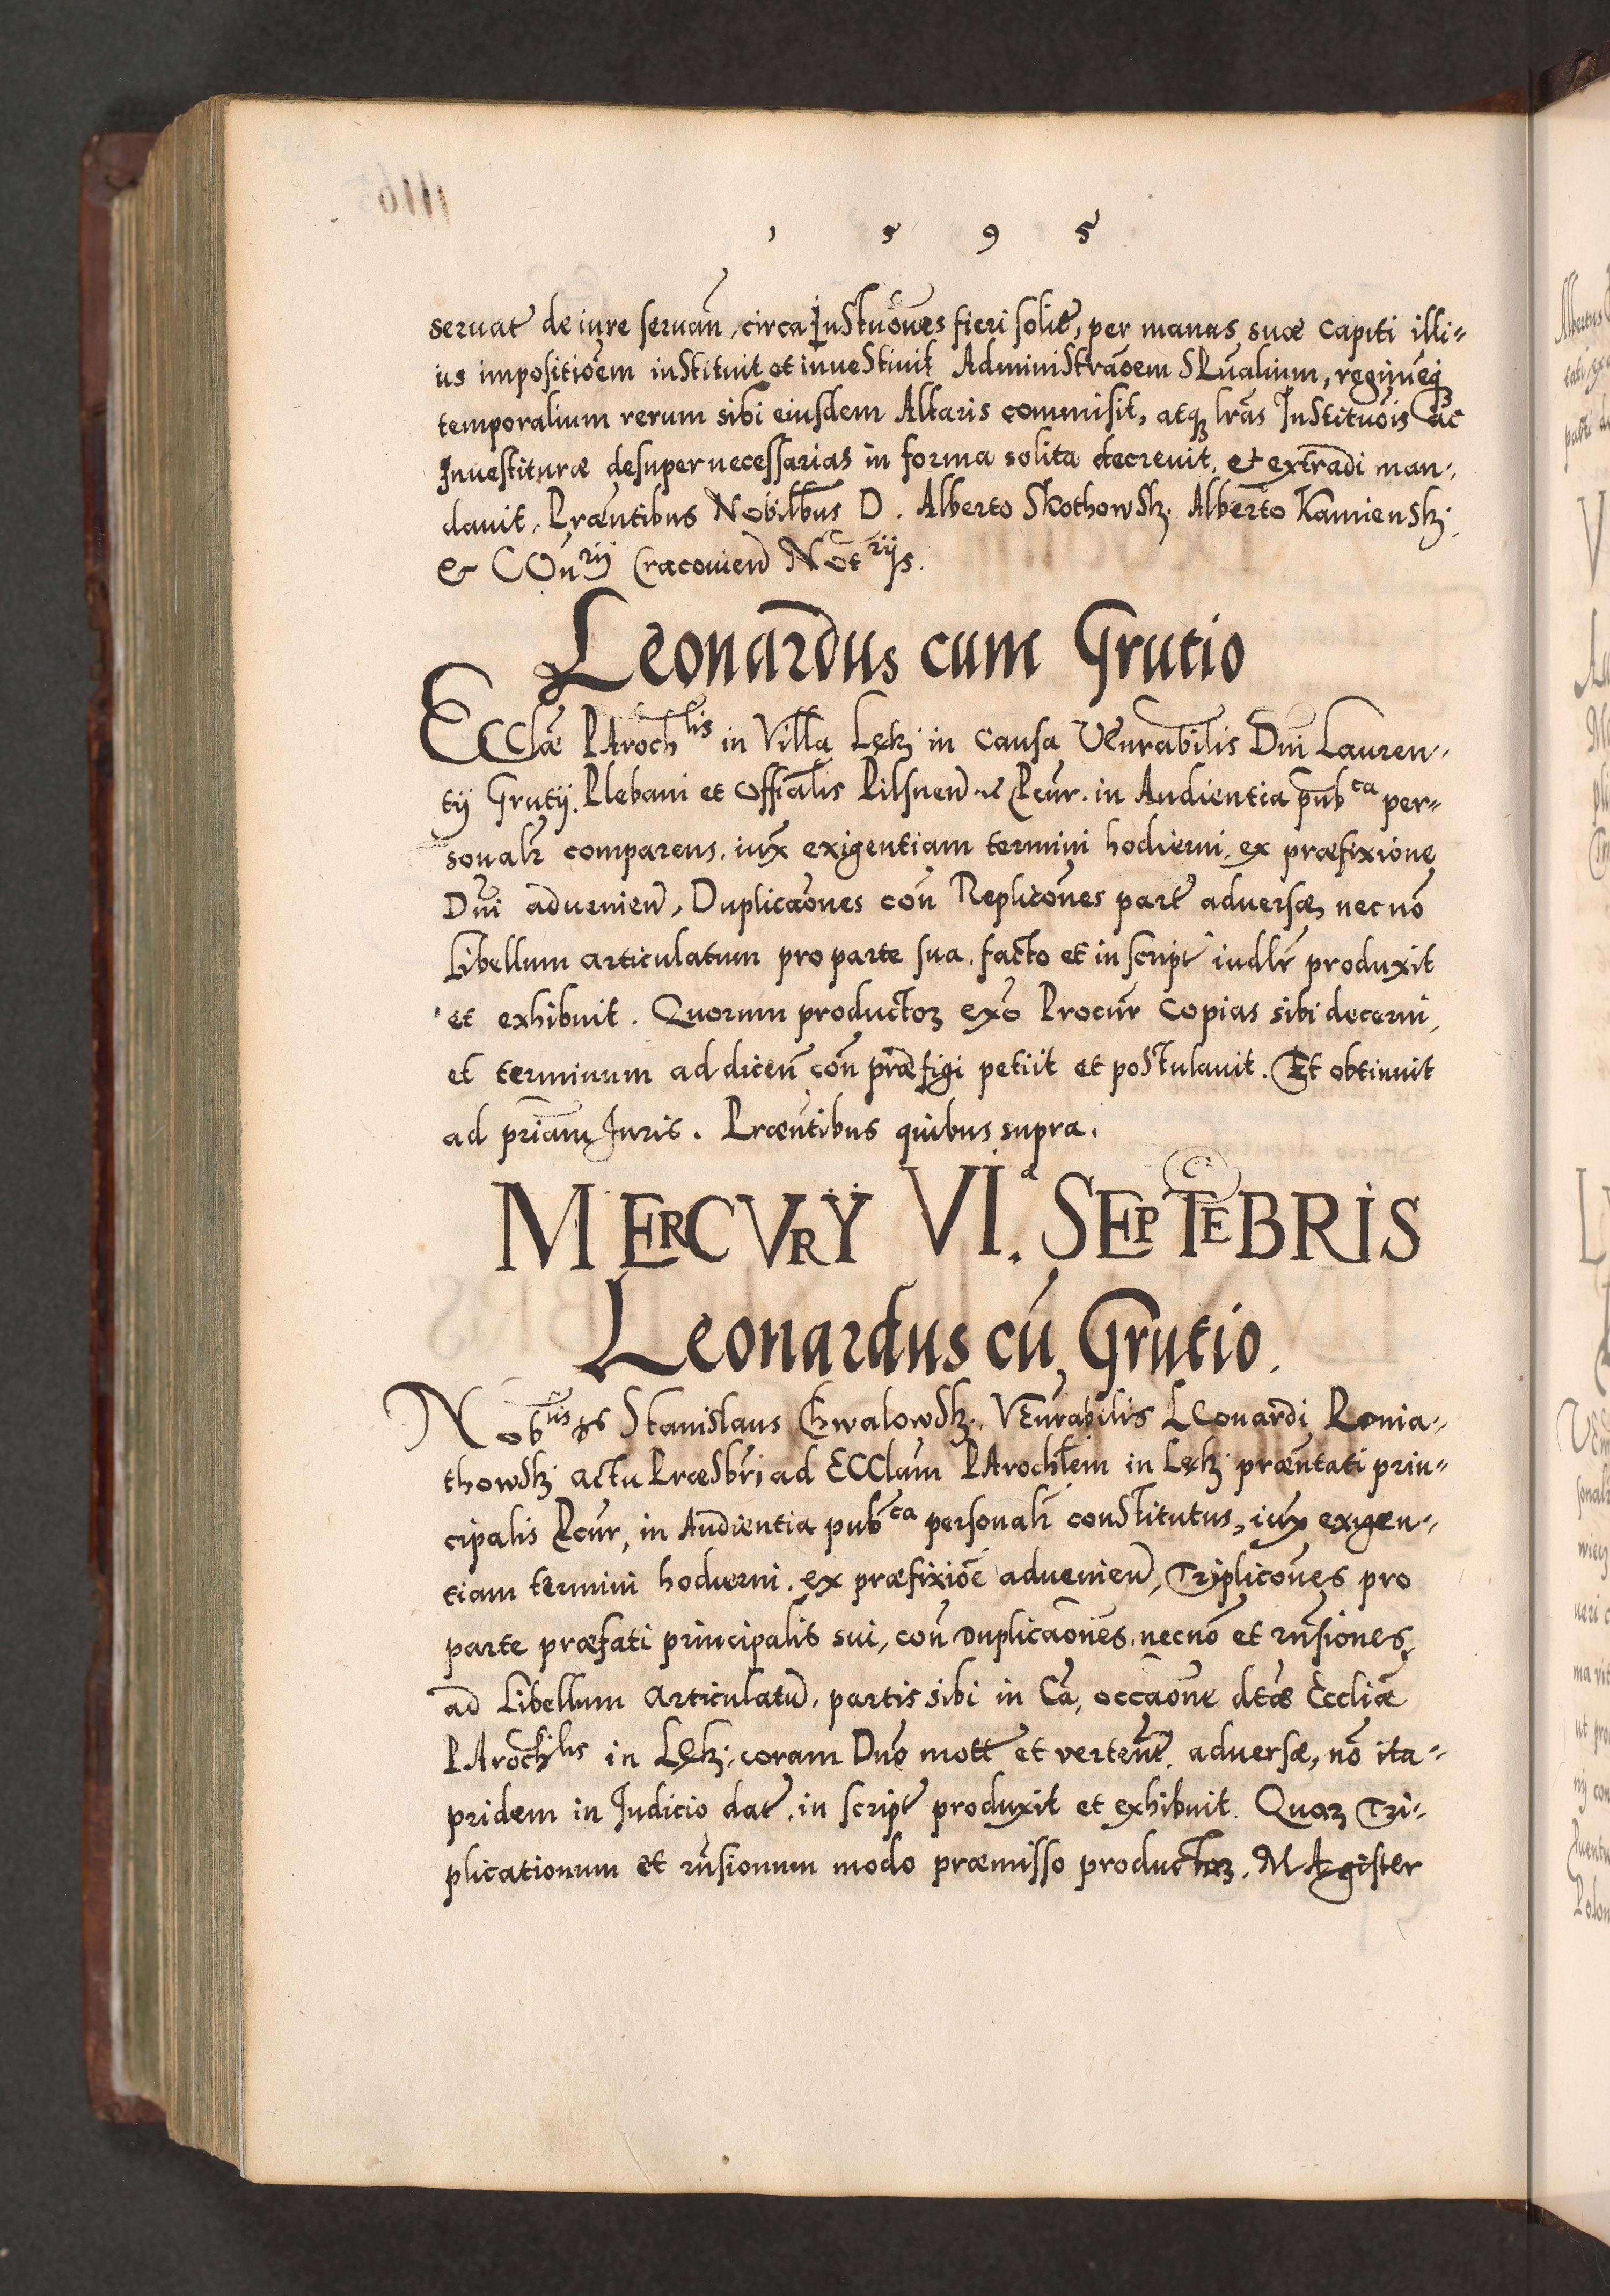 1 5 9 5
seruat de iure seruan, circa Instuões fieri solit, per manus suæ capiti illi=
us impositiõem instituit et inuestiuit Administraõem SPualium, regimẽq
temporalium rerum sibi eiusdem Altaris commisit, atq lrãs Institutiõis ac
Inuestituræ desuper necessarias in forma solita decreuit, et extradi man-
dauit, Præntibus Nobilbus D. Alberto Skothowsk. Alberto Kamiensk.
& COnrij Cracouien Notrijs.
Leonardus cum Grutio
ECClæ PArochlis in Villa Lęk. in causa VEnrabilis Dni Lauren-
tij Grutij. Plebani et Officialis Pilsnen Pcur. in Audientia pubca per=
sonalr comparens, iux exigentiam termini hodierni, ex præfixione
Dni aduenien, Duplicaõnes con Replicões part aduersæ, nec nõ
Libellum articulatum pro parte sua, facto et in script iudlr produxit
et exhibuit. Quorum productoꝝ exõ Procur Copias sibi decerni,
et terminum ad dicen con præfigi petiit et postulauit. Et obtinuit
ad priam Iuris. Præntibus quibus supra.
MERCVRY VI.a SEPTEBRIS
Leonardus cũ Grutio.
Nobis Stanislaus Chwalowsk. VEnrabilis LEonardi Ponia-
thowsk. actu Præsbri ad ECClam PArochlem in Lęk. præntati prin=
cipalis Pcur, in Audientia pubca personalr constitutus, iux exigen-
tiam termini hodierni, ex præfixiõe aduenien, Triplicões pro
parte præfati principalis sui, con Duplicaõnes, necnõ et rñsiones,
ad Libellum articulatũ, partis sibi in Ca, occaõne dtæ Eccliæ
PArochlis in Lęk. coram Dnõ mott et vertent, aduersæ, nõ ita-
pridem in Iudicio dat, in script produxit et exhibuit. Quoꝝ Tri-
plicationum et rñsionum modo præmisso productoꝝ, MAgister